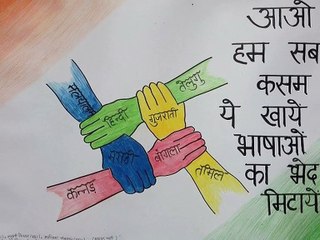 आओ
हम सब
कसम
ये खाये
भाषाओं
का भेद
मिटायें
मलयालम
तेलुगु
हिन्दी
गुजराती
मराठी
बांगला
कन्नड़
तमिल